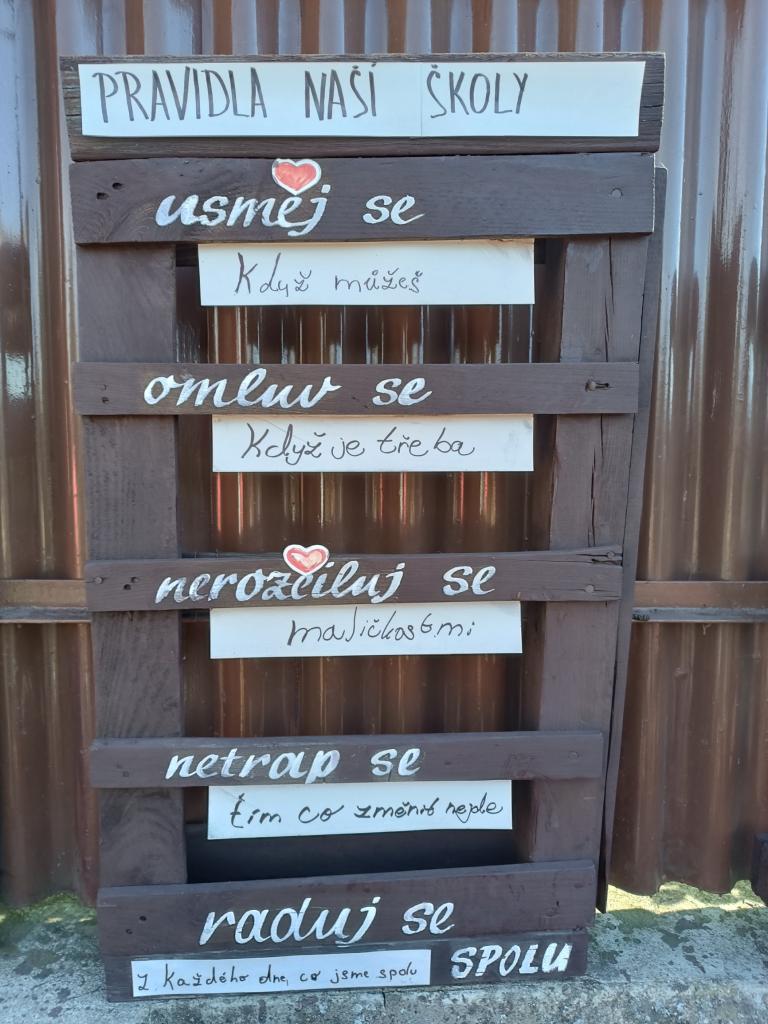 PRAVIDLA NAŠÍ ŠKOLY
usměj se
Když můžeš
omluv se
Když je třeba
nerozčiluj se
maličkostmi
netrap se
tím co změnit nejde
raduj se
z každého dne, co jsme spolu SPOLU